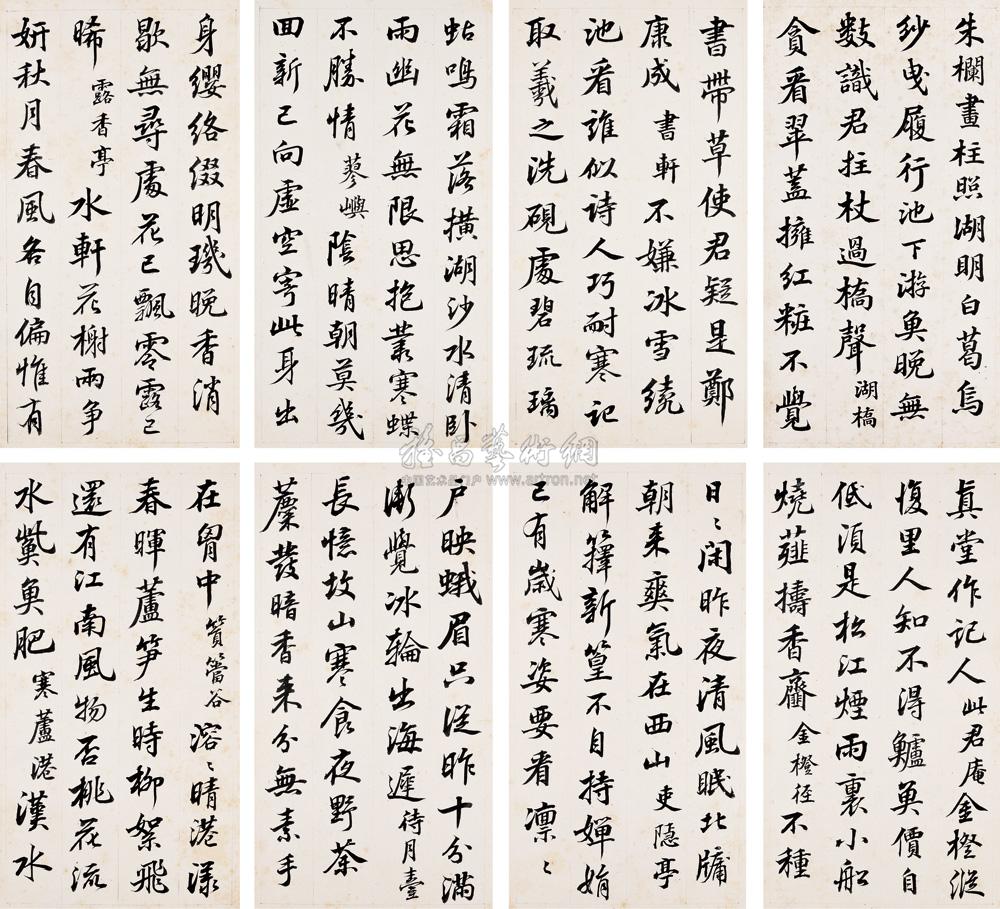 朱欄畫柱照湖明白葛烏
紗曳履行池下游魚晚無
數識君拄杖過橋聲 湖橋
貪看翠蓋擁紅粧不覺
書帶草使君疑是鄭
康成 書軒 不嫌冰雪繞
池看誰似詩人巧耐寒記
取羲之洗硯處碧琉璃
蛄鳴霜落橫湖沙水清臥
雨幽花無限思抱叢寒蝶
不勝情 蓼嶼 陰晴朝莫幾
回新已向虛空寄此身出
身纓絡綴明璣晚香消
歇無尋處花已飄零露已
晞 露香亭 水軒花榭兩爭
妍秋月春風各自偏惟有
真堂作記人 此君庵 金橙縱
復里人知不得鱸魚價自
低須是松江煙雨裏小船
燒薤擣香虀 金橙徑 不種
日〻閑昨夜清風眠北牖
朝來爽氣在西山 吏隱亭
解籜新篁不自持嬋娟
已有歲寒姿要看凛〻
戶映蛾眉只從昨十分滿
漸覺冰輪出海遲 待月臺
長憶故山寒食夜野荼
蘪發暗香來分無素手
在胷中 篔簹谷 溶〻晴港漾
春暉蘆筍生時柳絮飛
還有江南風物否桃花流
水鮆魚肥 寒蘆港 漢水
雅昌藝術網
中国艺术品门户 www.artron.net